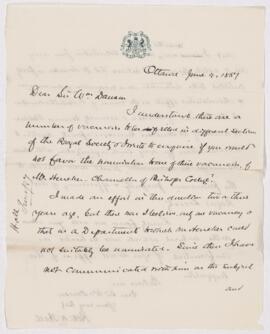 Ottawa June 4. 1887
Dear Sir Wm Dawson
I understand there are a
number of vacancies to be filled in different sections
of the Royal Society & I write to enquire if you would
not favor the nomination to one of these vacancies, of
Mr. Heneker Chancellor of Bishops College.
I made an effort in this direction two or three
years ago, but there was I believe only one vacancy &
that in a Department to which Mr Heneker could
not suitably be nominated. Since then I have
not communicated with him on the subject
and
Hall
June 4/87